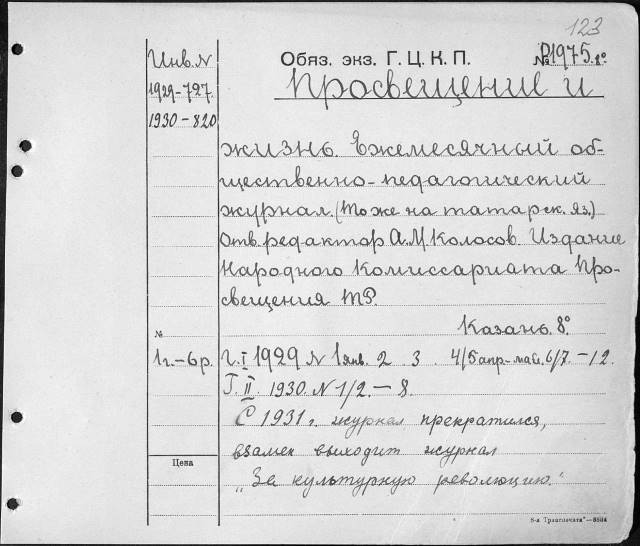 123
Инв. N
Обяз. экз. Г. Ц. К. П.
№ Р1975.1°
1929-727.
Просвещение и
1930-820
жизнь. Ежемесячный об-
щественно-педагогический
журнал. (То же на татарск. яз.)
Отв. редактор А.М. Колосов. Издание
Народного Комиссариата Про-
свещения ТР.
Казань. 8°
№
1 г.-6 р.
Г. I 1929 N 1 янв. 2 . 3 4/5 апр-май. 6/7. - 12.
Г. II. 1930. N 1/2. - 8.
С 1931 г. журнал прекратился,
взамен выходит журнал
Цена
"За культурную революцию."